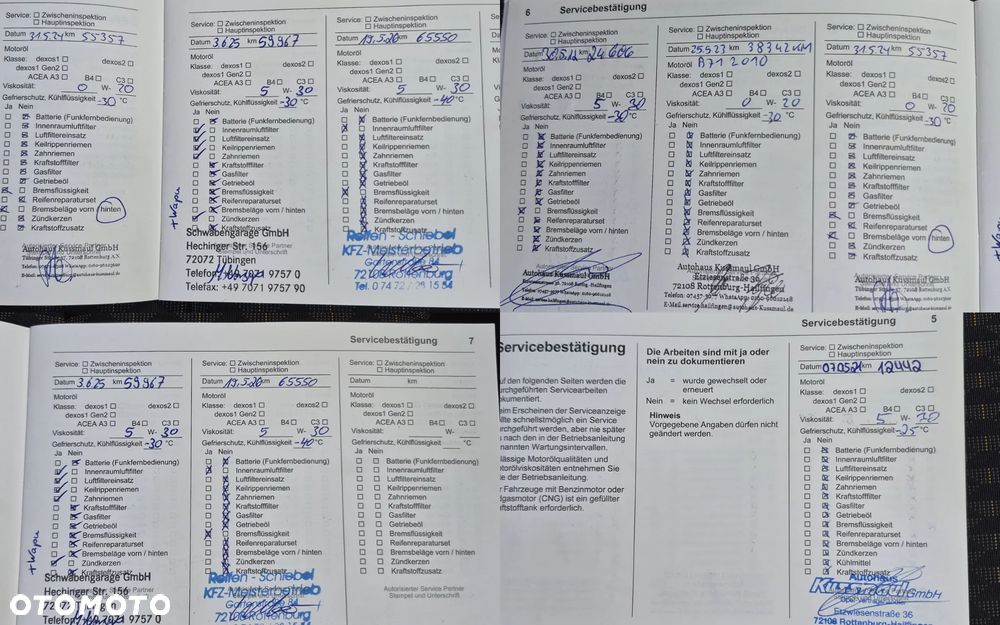 Service: Zwischeninspektion
Hauptinspektion
Datum 31.5.24 km 55357
Motoröl
Klasse: dexos1
dexos2
dexos1 Gen2
ACEA A3 B4 C3
Viskosität: 0 W- 20
Gefrierschutz, Kühlflüssigkeit -30 °C
Ja Nein
Batterie (Funkfernbedienung)
Innenraumluftfilter
Luftfiltereinsatz
Keilrippenriemen
Zahnriemen
Kraftstofffilter
Gasfilter
Getriebeöl
Bremsflüssigkeit
Reifenreparaturset
Bremsbeläge vorn / hinten
Zündkerzen
Kraftstoffzusatz
Autohaus Kussmaul GmbH
Service: Zwischeninspektion
Hauptinspektion
Datum 3.6.25 km 59.967
Motoröl
Klasse: dexos1
dexos2
dexos1 Gen2
ACEA A3 B4 C3
Viskosität: 5 W- 30
Gefrierschutz, Kühlflüssigkeit -30 °C
Ja Nein
Batterie (Funkfernbedienung)
Innenraumluftfilter
Luftfiltereinsatz
Keilrippenriemen
Zahnriemen
Kraftstofffilter
Gasfilter
Getriebeöl
Bremsflüssigkeit
Reifenreparaturset
Bremsbeläge vorn / hinten
Zündkerzen
Kraftstoffzusatz
+Wapu
Schwabengarage GmbH
Hechinger Str. 156
72072 Tübingen
Telefon +49 7071 9757 0
Telefax: +49 7071 9757 90
Service: Zwischeninspektion
Hauptinspektion
Datum 19.5.20 km 65550
Motoröl
Klasse: dexos1
dexos2
dexos1 Gen2
ACEA A3 B4 C3
Viskosität: 5 W- 30
Gefrierschutz, Kühlflüssigkeit -40 °C
Ja Nein
Batterie (Funkfernbedienung)
Innenraumluftfilter
Luftfiltereinsatz
Keilrippenriemen
Zahnriemen
Kraftstofffilter
Gasfilter
Getriebeöl
Bremsflüssigkeit
Reifenreparaturset
Bremsbeläge vorn / hinten
Zündkerzen
Kraftstoffzusatz
Reifen - Schiebel
KFZ-Meisterbetrieb
Gartenstraße 84
72108 Rottenburg
Tel. 0 74 72 / 29 15 54
6 Servicebestätigung
Service: Zwischeninspektion
Hauptinspektion
Datum km 24606
Motoröl
Klasse: dexos1
dexos2
dexos1 Gen2
ACEA A3 B4 C3
Viskosität: 5 W- 30
Gefrierschutz, Kühlflüssigkeit -30 °C
Ja Nein
Batterie (Funkfernbedienung)
Innenraumluftfilter
Luftfiltereinsatz
Keilrippenriemen
Zahnriemen
Kraftstofffilter
Gasfilter
Getriebeöl
Bremsflüssigkeit
Reifenreparaturset
Bremsbeläge vorn / hinten
Zündkerzen
Kraftstoffzusatz
Autohaus Kussmaul GmbH
Service: Zwischeninspektion
Hauptinspektion
Datum 25.9.23 km 38342KM
Motoröl B71 2010
Klasse: dexos1
dexos2
dexos1 Gen2
ACEA A3 B4 C3
Viskosität: 0 W- 20
Gefrierschutz, Kühlflüssigkeit -30 °C
Ja Nein
Batterie (Funkfernbedienung)
Innenraumluftfilter
Luftfiltereinsatz
Keilrippenriemen
Zahnriemen
Kraftstofffilter
Gasfilter
Getriebeöl
Bremsflüssigkeit
Reifenreparaturset
Bremsbeläge vorn / hinten
Zündkerzen
Kraftstoffzusatz
Autohaus Kussmaul GmbH
Etzwiesenstraße 36
72108 Rottenburg-Hailfingen
Service: Zwischeninspektion
Hauptinspektion
Datum 31.5.24 km 55357
Motoröl
Klasse: dexos1
dexos2
dexos1 Gen2
ACEA A3 B4 C3
Viskosität: 0 W- 20
Gefrierschutz, Kühlflüssigkeit -30 °C
Ja Nein
Batterie (Funkfernbedienung)
Innenraumluftfilter
Luftfiltereinsatz
Keilrippenriemen
Zahnriemen
Kraftstofffilter
Gasfilter
Getriebeöl
Bremsflüssigkeit
Reifenreparaturset
Bremsbeläge vorn / hinten
Zündkerzen
Kraftstoffzusatz
Autohaus Kussmaul GmbH
Servicebestätigung 7
Service: Zwischeninspektion
Hauptinspektion
Datum 3.6.25 km 59.967
Motoröl
Klasse: dexos1
dexos2
dexos1 Gen2
ACEA A3 B4 C3
Viskosität: 5 W- 30
Gefrierschutz, Kühlflüssigkeit -30 °C
Ja Nein
Batterie (Funkfernbedienung)
Innenraumluftfilter
Luftfiltereinsatz
Keilrippenriemen
Zahnriemen
Kraftstofffilter
Gasfilter
Getriebeöl
Bremsflüssigkeit
Reifenreparaturset
Bremsbeläge vorn / hinten
Zündkerzen
Kraftstoffzusatz
+Wapu
Schwabengarage GmbH
Hechinger Str. 156
Telefon +49 7071 9757 0
Service: Zwischeninspektion
Hauptinspektion
Datum 19.5.20 km 65550
Motoröl
Klasse: dexos1
dexos2
dexos1 Gen2
ACEA A3 B4 C3
Viskosität: 5 W- 30
Gefrierschutz, Kühlflüssigkeit -40 °C
Ja Nein
Batterie (Funkfernbedienung)
Innenraumluftfilter
Luftfiltereinsatz
Keilrippenriemen
Zahnriemen
Kraftstofffilter
Gasfilter
Getriebeöl
Bremsflüssigkeit
Reifenreparaturset
Bremsbeläge vorn / hinten
Zündkerzen
Kraftstoffzusatz
Reifen - Schiebel
KFZ-Meisterbetrieb
Gartenstraße 84
72108 Rottenburg
Service: Zwischeninspektion
Hauptinspektion
Datum km
Motoröl
Klasse: dexos1
dexos2
dexos1 Gen2
ACEA A3 B4 C3
Viskosität: W-
Gefrierschutz, Kühlflüssigkeit °C
Ja Nein
Batterie (Funkfernbedienung)
Innenraumluftfilter
Luftfiltereinsatz
Keilrippenriemen
Zahnriemen
Kraftstofffilter
Gasfilter
Getriebeöl
Bremsflüssigkeit
Reifenreparaturset
Bremsbeläge vorn / hinten
Zündkerzen
Kraftstoffzusatz
Autorisierter Service Partner
Stempel und Unterschrift
Servicebestätigung 5
Servicebestätigung
uf den folgenden Seiten werden die
urchgeführten Servicearbeiten
okumentiert.
eim Erscheinen der Serviceanzeige
llte schnellstmöglich ein Service
rchgeführt werden, aber nie später
s nach den in der Betriebsanleitung
nannten Wartungsintervallen.
lässige Motorölqualitäten und
otorölviskositäten entnehmen Sie
te der Betriebsanleitung.
r Fahrzeuge mit Benzinmotor oder
dgasmotor (CNG) ist ein gefüllter
aftstofftank erforderlich.
Die Arbeiten sind mit ja oder
nein zu dokumentieren
Ja = wurde gewechselt oder
erneuert
Nein = kein Wechsel erforderlich
Hinweis
Vorgegebene Angaben dürfen nicht
geändert werden.
Service: Zwischeninspektion
Hauptinspektion
Datum 07.05.21 km 12442
Motoröl
Klasse: dexos1
dexos2
dexos1 Gen2
ACEA A3 B4 C3
Viskosität: 5 W- 30
Gefrierschutz, Kühlflüssigkeit -25 °C
Ja Nein
Batterie (Funkfernbedienung)
Innenraumluftfilter
Luftfiltereinsatz
Keilrippenriemen
Zahnriemen
Kraftstofffilter
Gasfilter
Getriebeöl
Bremsflüssigkeit
Reifenreparaturset
Bremsbeläge vorn / hinten
Zündkerzen
Kühlmittel
Kraftstoffzusatz
Autohaus
Kussmaul GmbH
Etzwiesenstraße 36
72108 Rottenburg-Hailfingen
OTOMOTO